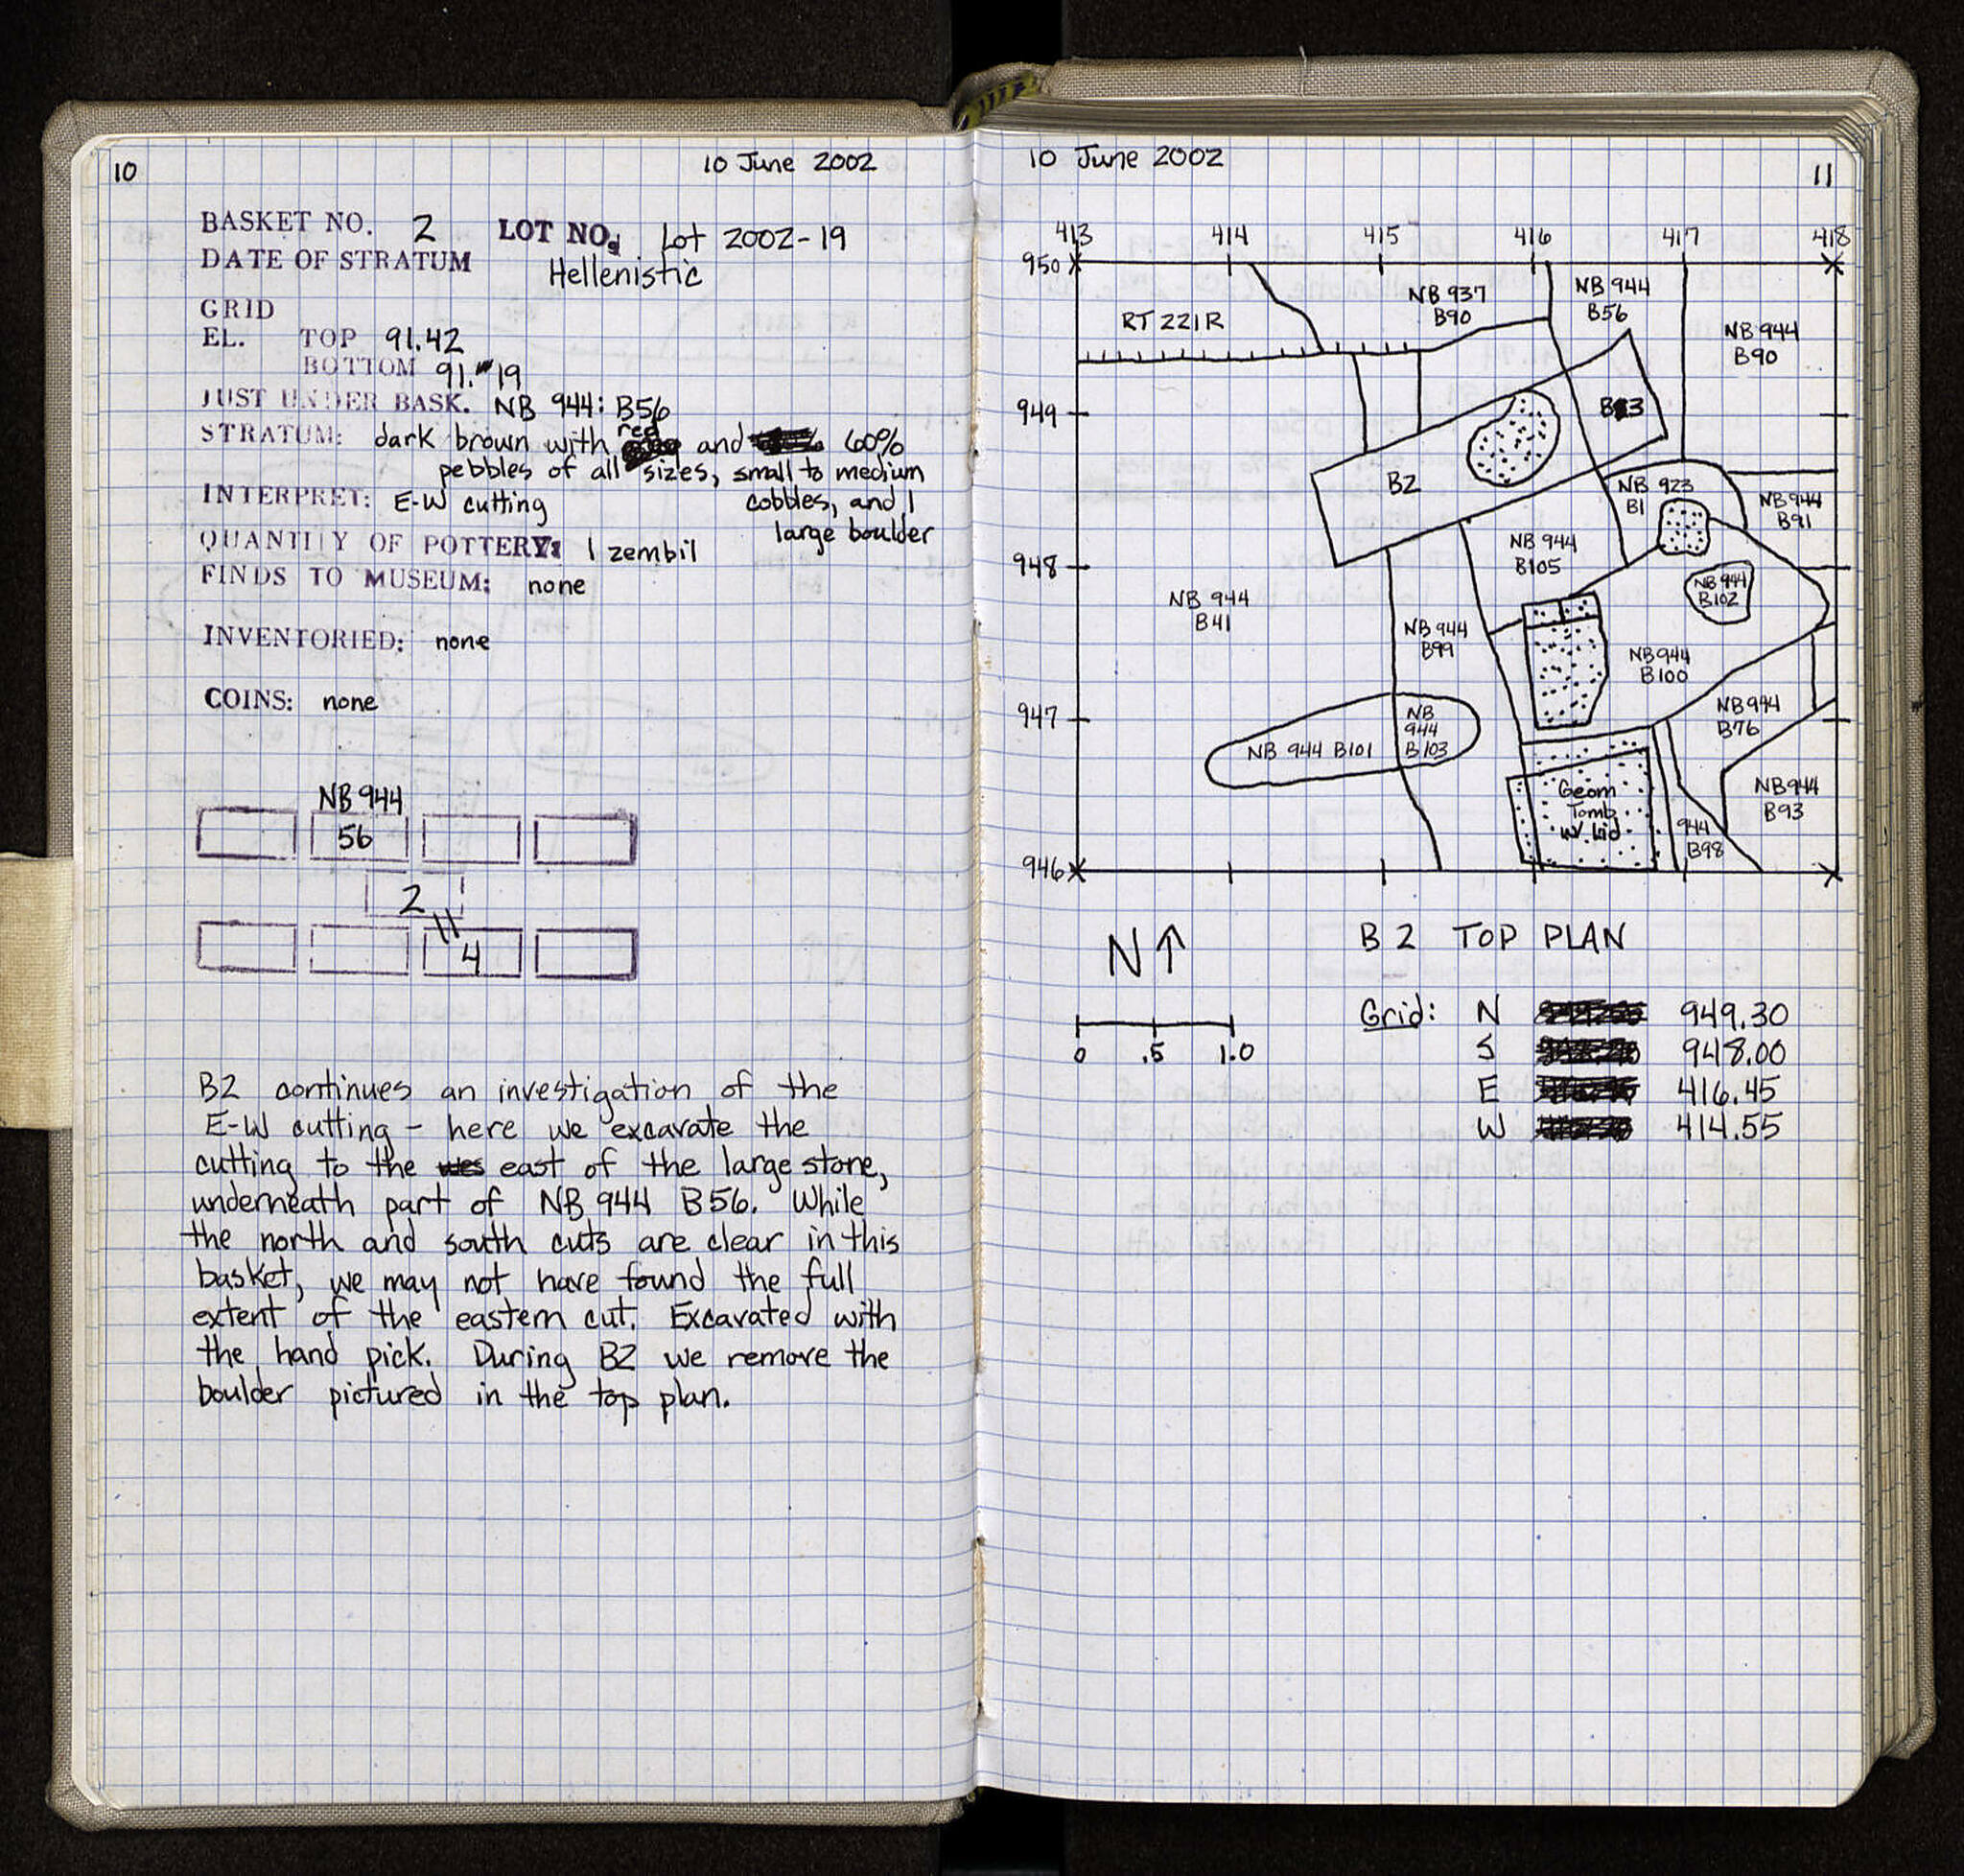 10
10 June 2002
BASKET NO. 2 LOT NO. Lot 2002-19
DATE OF STRATUM Hellenistic
GRID
EL. TOP 91.42
BOTTOM 91.19
JUST UNDER BASK. NB 944: B56
STRATUM: dark brown with red and 60%
pebbles of all sizes, small to medium
cobbles, and 1
large boulder
INTERPRET: E-W cutting
QUANTITY OF POTTERY: 1 zembil
FINDS TO MUSEUM: none
INVENTORIED: none
COINS: none
NB 944
56
2
4
B2 continues an investigation of the
E-W cutting - here we excavate the
cutting to the east of the large stone,
underneath part of NB 944 B56. While
the north and south cuts are clear in this
basket, we may not have found the full
extent of the eastern cut. Excavated with
the hand pick. During B2 we remove the
boulder pictured in the top plan.
10 June 2002
11
413 414 415 416 417 418
950
949
948
947
946
RT 221R
NB 937
B90
NB 944
B56
NB 944
B90
B2
NB 923
B1
NB 944
B91
NB 944
B105
NB 944
B102
NB 944
B41
NB 944
B99
NB 944
B100
NB 944
B76
NB 944 B101
NB
944
B103
Geom
Tomb
w/ Lid
944
B98
NB 944
B93
N↑
0 .5 1.0
B2 TOP PLAN
Grid: N 949.30
S 948.00
E 416.45
W 414.55